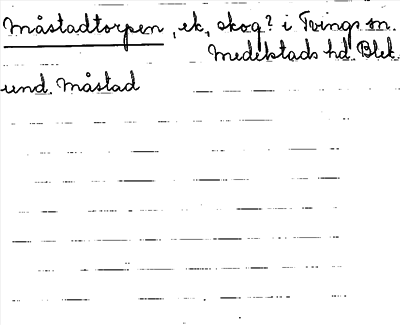 Måstadtorpen, ek, skog? i Tvings sn.
Medelstads hd. Blek.
und. Måstad